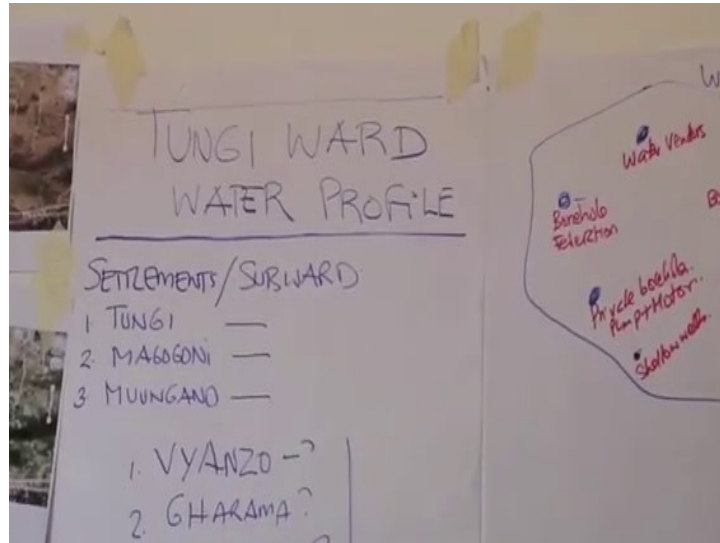 TUNGI WARD
WATER PROFILE
SETTLEMENTS/SUBWARD
1. TUNGI —
2. MAGOGONI —
3 MUUNGANO —
1. VYANZO -?
2. GHARAMA?
W
Water Vendors
Borehole
Federation
Private borehole.
Pump+Motor.
Shallow wells.